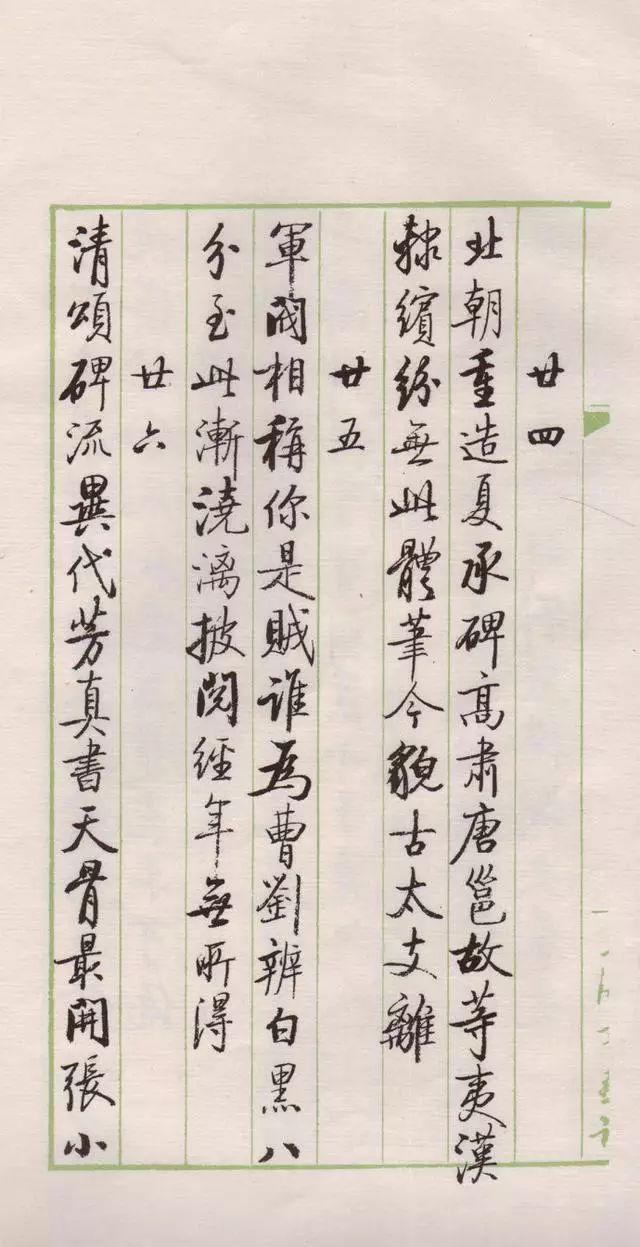 廿四
北朝重造夏承碑高肅唐邕故等夷漢
隸繽紛無此體笔今貌古太支離
廿五
軍閥相稱你是賊誰為曹劉辨白黑八
分至此漸澆漓披閱經年無所得
廿六
清頌碑流異代芳真書天骨最開張小